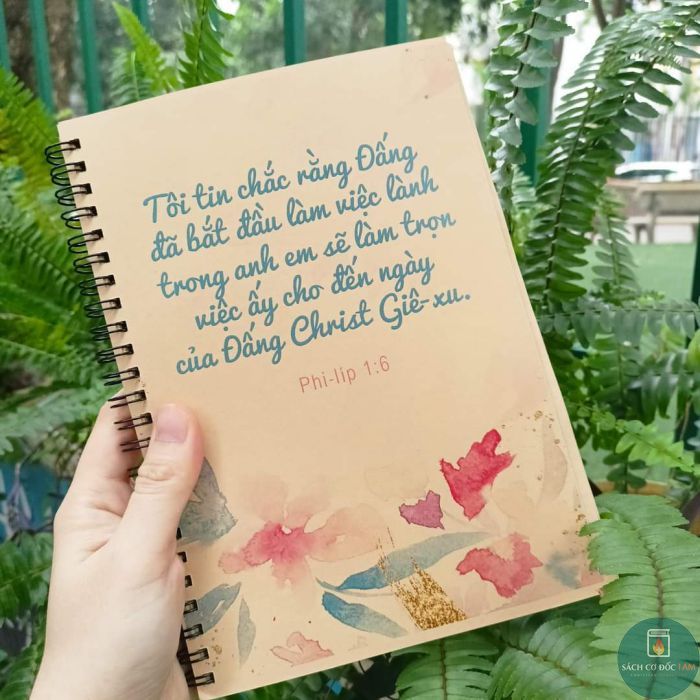 Tôi tin chắc rằng Đấng
đã bắt đầu làm việc lành
trong anh em sẽ làm trọn
việc ấy cho đến ngày
của Đấng Christ Giê-xu.
Phi-líp 1:6
SÁCH CƠ ĐỐC